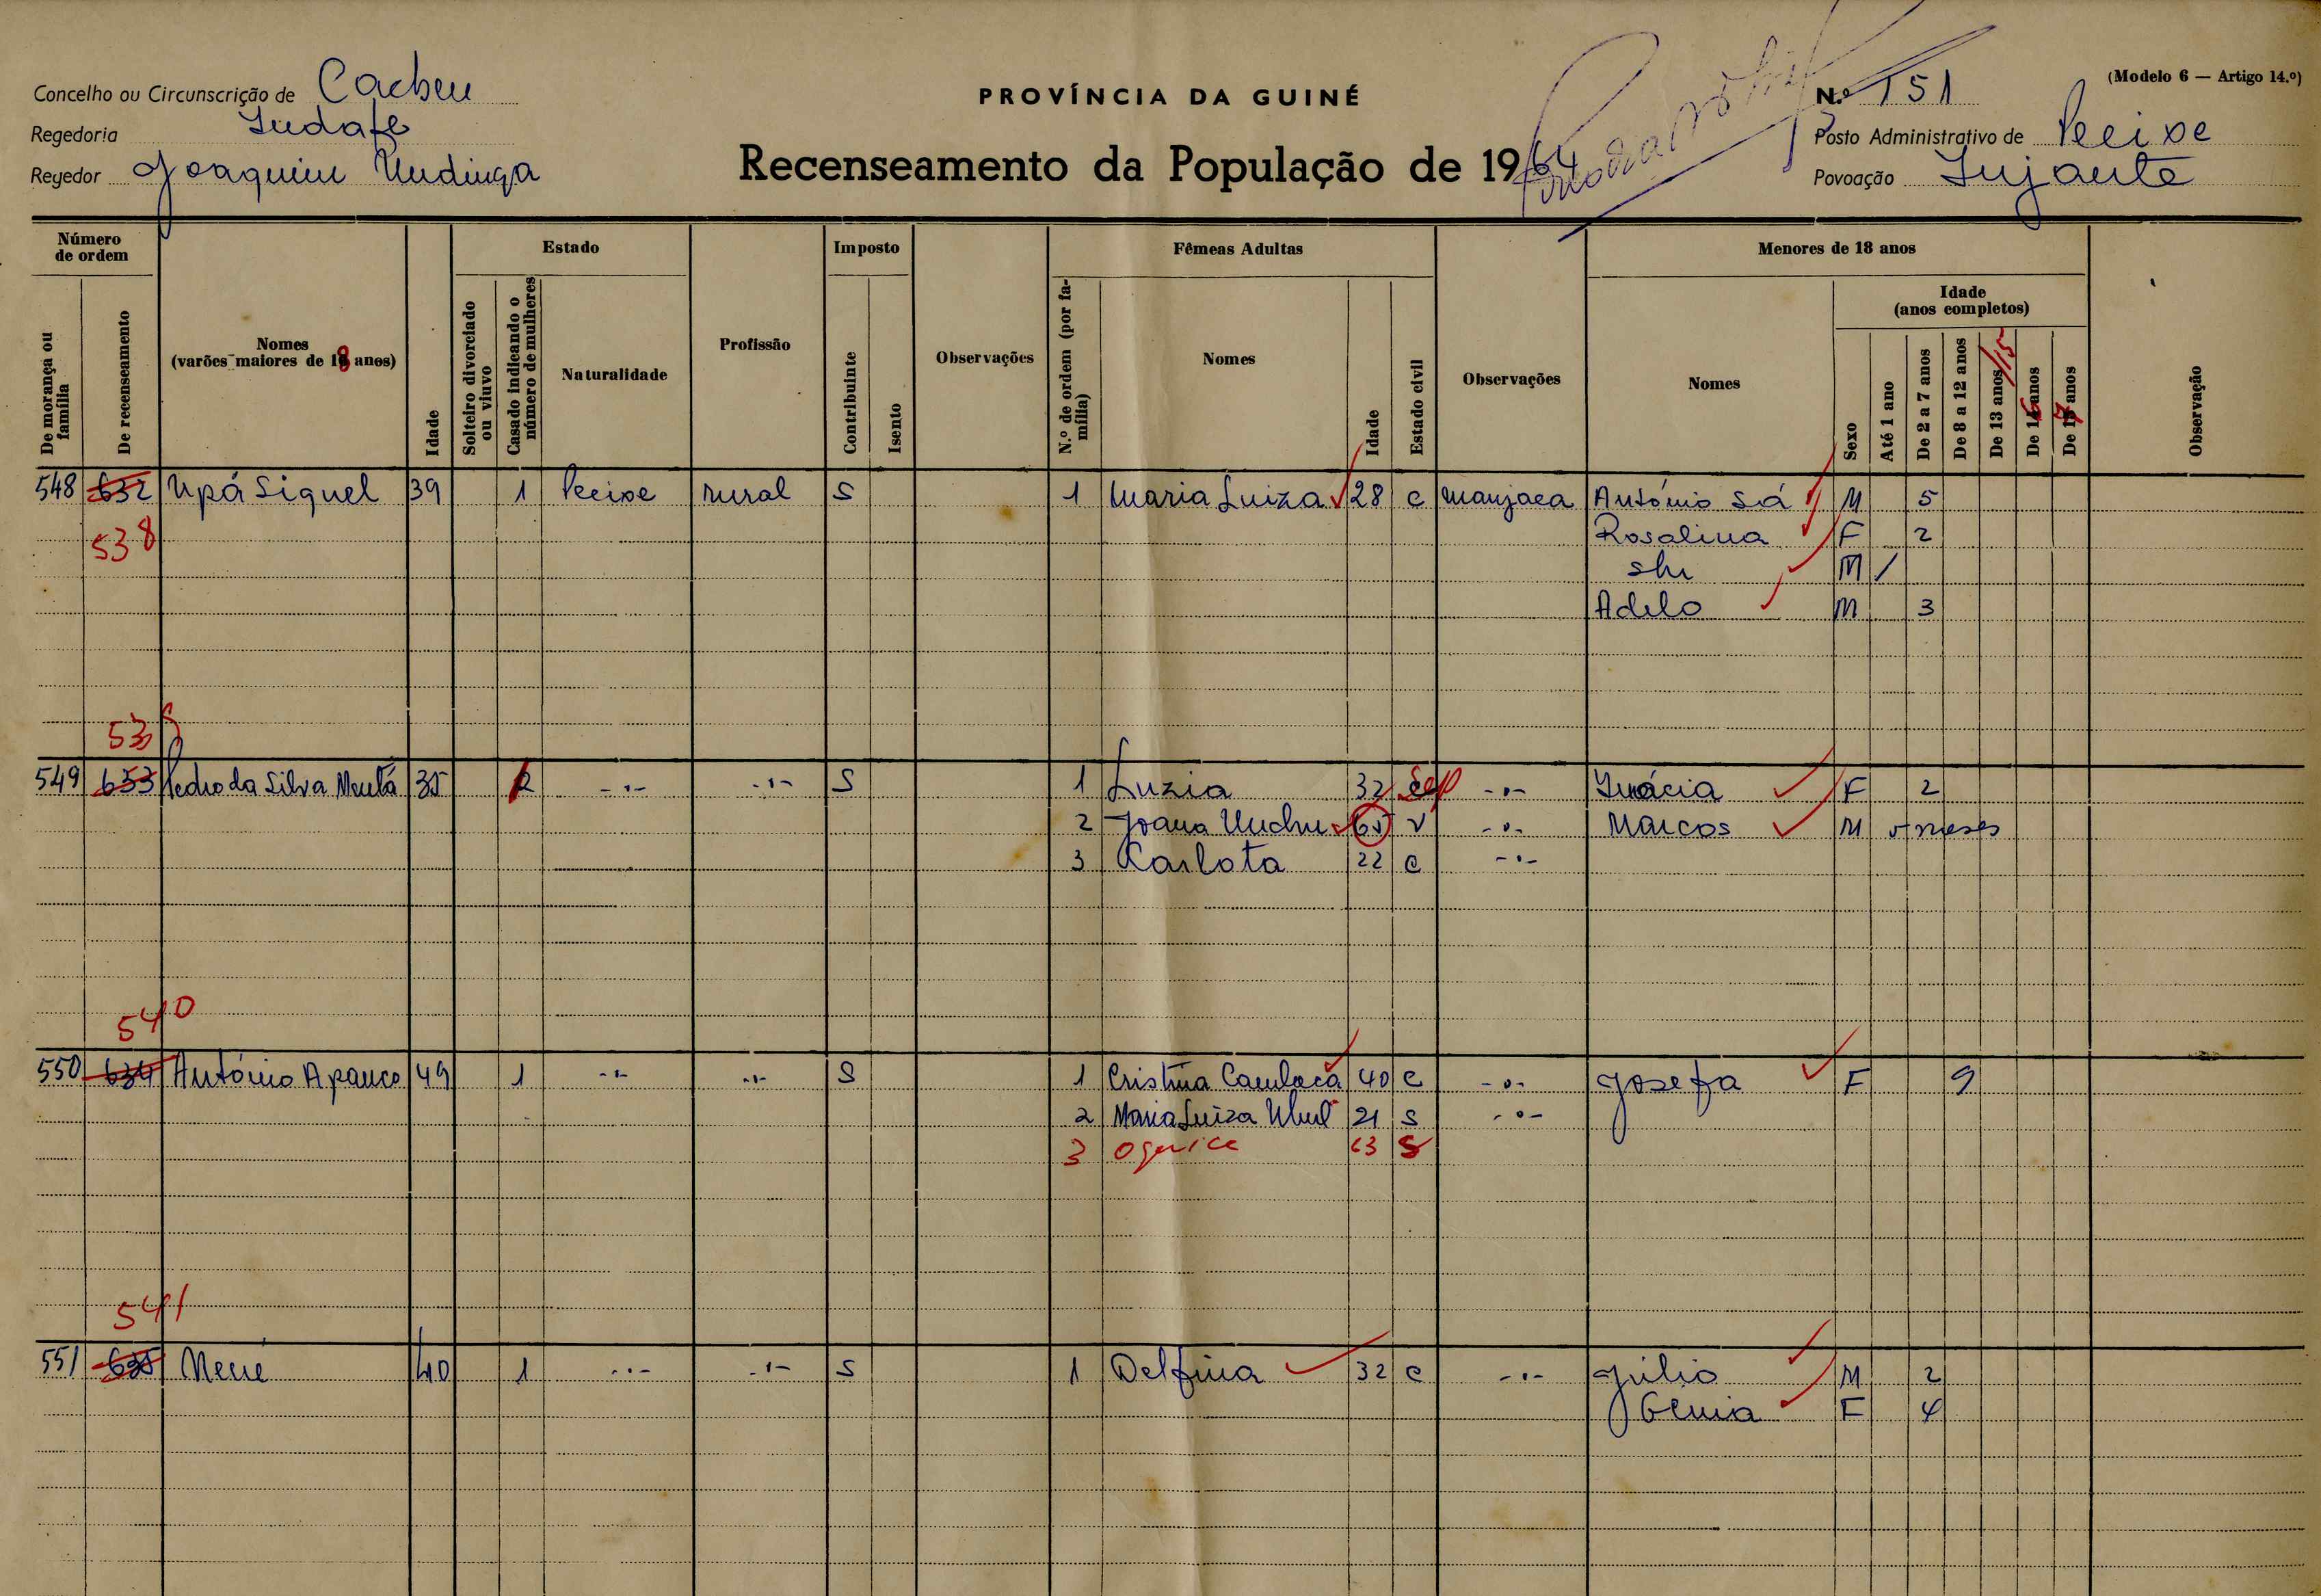 (Modelo 6 — Artigo 14.º)
Concelho ou Circunscrição de Cacheu
PROVÍNCIA DA GUINÉ
N.º 151
Regedoria
Posto Administrativo de Pecixe
Regedor Joaquim
Recenseamento da População de 1964
Povoação
Número de ordem
Estado
Imposto
Fêmeas Adultas
Menores de 18 anos
De morança ou família
De recenseamento
Nomes
(varões maiores de 18 anos)
Idade
Solteiro divorciado ou viuvo
Casado indicando o número de mulheres
Naturalidade
Profissão
Contribuinte
Isento
Observações
N.º de ordem (por família)
Nomes
Idade
Estado civil
Observações
Nomes
Sexo
Idade
(anos completos)
Até 1 ano
De 2 a 7 anos
De 8 a 12 anos
De 13 anos/15
De 16 anos
De 17 anos
Observação
548 632 Upá Siquel 39 1 Pecixe rural S 1 Maria Luiza 28 C manjaca António Sá M 5
538 Rosalina F 2
M /
Adelo M 3
539
549 633 Pedro da Silva 35 2 -"- -"- S 1 Luzia 32 Sep -"- Inácia F 2
2 Joana 65 V -"- Marcos M meses
3 Carlota 22 C -"-
540
550 634 António Apanco 49 1 -"- -"- S 1 Cristina 40 C -"- Josefa F 9
2 Maria Luiza 21 S -"-
3 63 S
541
551 635 Mené 40 1 -"- -"- S 1 Delfina 32 C -"- Júlio M 2
F 4